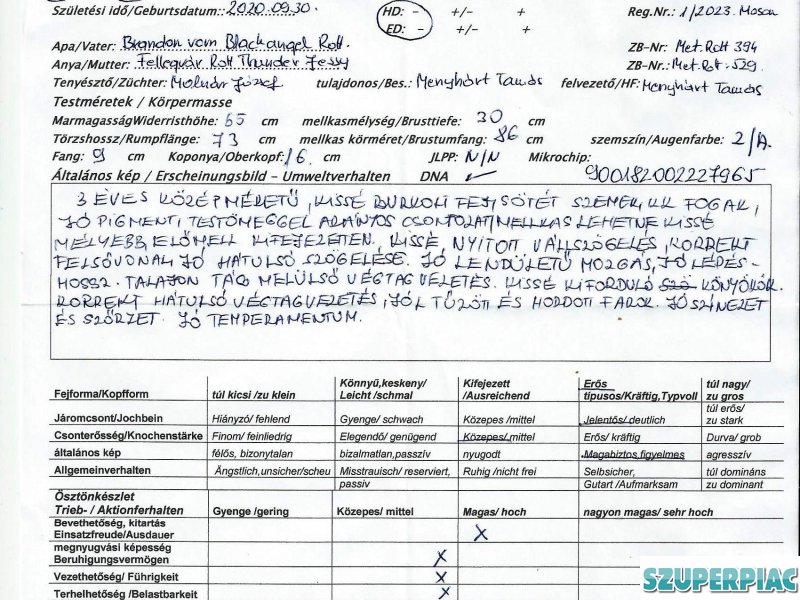 Születési idő/Geburtsdatum: 2020.09.30. HD: - +/- + Reg.Nr.: 1/2023. Moson
ED: - +/- +
Apa/Vater: Brandon vom Blackangel Rott. ZB-Nr: Met.Rott 394
Anya/Mutter: Fellegvár Rott Thunder Jessy ZB-Nr: Met.Rott.-529.
Tenyésztő/Züchter: Molnár József tulajdonos/Bes.: Menyhárt Tamás felvezető/HF: Menyhárt Tamás
Testméretek / Körpermasse
MarmagasságWiderristhöhe: 65 cm mellkasmélység/Brusttiefe: 30 cm
Törzshossz/Rumpflänge: 73 cm mellkas körméret/Brustumfang: 86 cm szemszín/Augenfarbe: 2/A.
Fang: 9 cm Koponya/Oberkopf: 16 cm JLPP: N/N Mikrochip:
Általános kép / Erscheinungsbild - Umweltverhalten DNA ✓ 900182002227965
3 ÉVES KÖZÉPMÉRETŰ, KISSÉ BURKOLT FEJ, SÖTÉT SZEMEK, KK FOGAK,
JÓ PIGMENT, TESTÖMEGGEL ARÁNYOS CSONTOZAT, MELLKAS LEHETNE KISSÉ
MÉLYEBB, ELŐMELL KIFEJEZETTEN, KISSÉ NYITOTT VÁLLSZÖGELÉS, KORREKT
FELSŐVONAL, JÓ HÁTULSÓ SZÖGELÉSE. JÓ LENDÜLETŰ MOZGÁS, JÓ LÉPÉS-
HOSSZ. TALAJON TÁG MELÜLSŐ VÉGTAGVEZETÉS. KISSÉ KIFORDULÓ KÖNYÖKÖK.
KORREKT HÁTULSÓ VÉGTAGVEZETÉS, JÓL TŰZÖTT ÉS HORDOTT FAROK. JÓ SZÍNEZET
ÉS SZŐRZET. JÓ TEMPERAMENTUM.
Fejforma/Kopfform túl kicsi /zu klein Könnyű,keskeny/ Leicht /schmal Kifejezett /Ausreichend Erős típusos/Kräftig,Typvoll túl nagy/ zu gros
Járomcsont/Jochbein Hiányzó/ fehlend Gyenge/ schwach Közepes /mittel Jelentős/ deutlich túl erős/ zu stark
Csonterősség/Knochenstärke Finom/ feinliedrig Elegendő/ genügend Közepes/ mittel Erős/ kräftig Durva/ grob
általános kép félős, bizonytalan bizalmatlan,passzív nyugodt Magabiztos,figyelmes agresszív
Allgemeinverhalten Ängstlich,unsicher/scheu Misstrauisch/ reserviert, passiv Ruhig /nicht frei Selbsicher, Gutart /Aufmarksam túl domináns zu dominant
Ösztönkészlet
Trieb- / Aktionferhalten Gyenge /gering Közepes/ mittel Magas/ hoch nagyon magas/ sehr hoch
Bevethetőség, kitartás
Einsatzfreude/Ausdauer X
megnyugvási képesség
Beruhigungsvermögen X
Vezethetőség/ Führigkeit X
Terhelhetőség /Belastbarkeit X
SZUPERPIAC